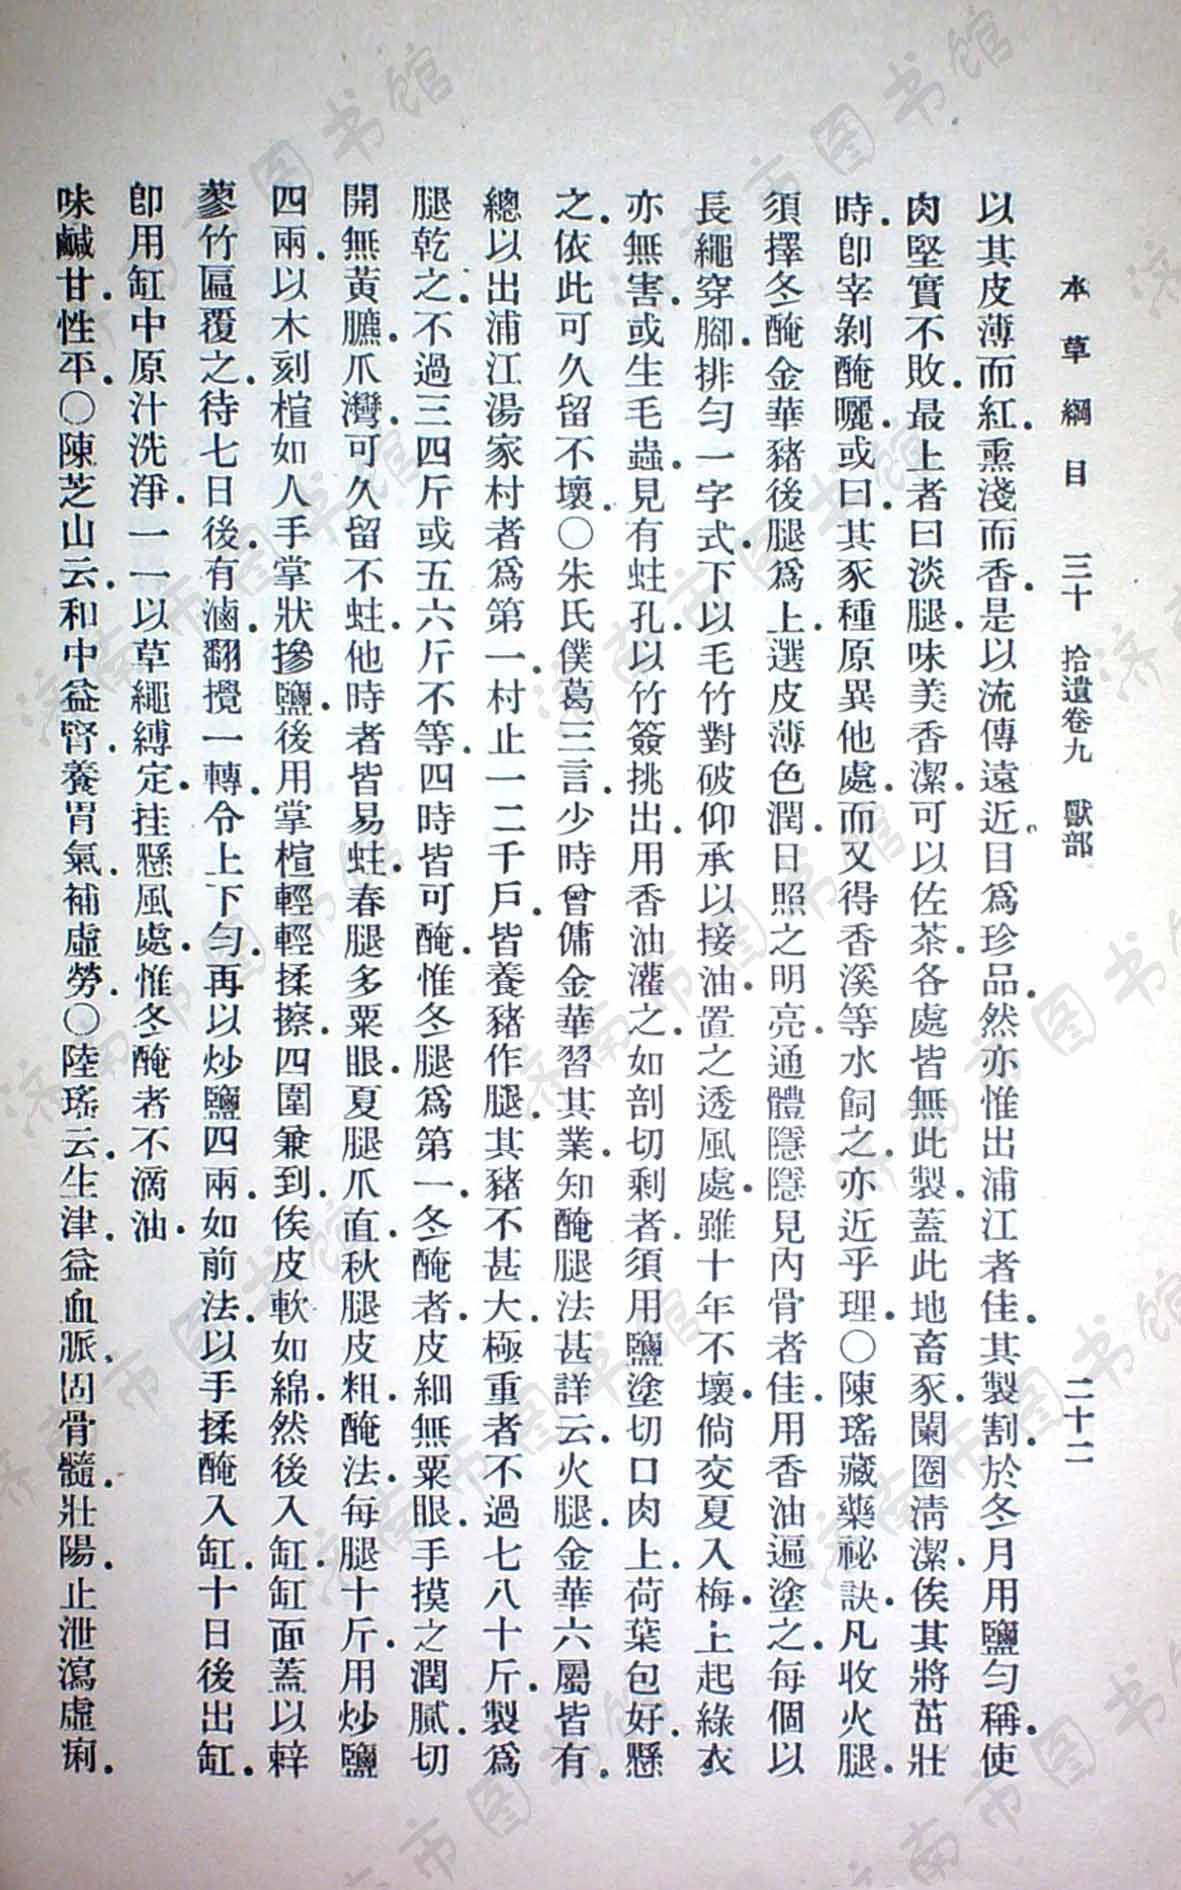 本草綱目 三十 拾遺卷九 獸部 二十二
以其皮薄而紅.熏淺而香.是以流傳遠近.目爲珍品.然亦惟出浦江者佳.其製割.於冬月用鹽勻稱.使
肉堅實不敗.最上者曰淡腿.味美香潔.可以佐茶.各處皆無此製.蓋此地畜豕.闌圈清潔.俟其將茁壯
時.卽宰剝醃曬.或曰.其豕種原異他處.而又得香溪等水飼之.亦近乎理.○陳瑤藏藥祕訣.凡收火腿.
須擇冬醃金華豬後腿爲上.選皮薄色潤.日照之明亮.通體隱隱見內骨者佳.用香油遍塗之.每個以
長繩穿腳.排勻一字式.下以毛竹對破仰承以接油.置之透風處.雖十年不壞.倘交夏入梅.上起綠衣
亦無害.或生毛蟲.見有蛀孔.以竹簽挑出.用香油灌之.如剖切剩者.須用鹽塗切口肉上.荷葉包好.懸
之.依此可久留不壞.○朱氏僕葛三言.少時曾傭金華.習其業.知醃腿法甚詳.云.火腿.金華六屬皆有.
總以出浦江湯家村者爲第一.村止一二千戶.皆養豬作腿.其豬不甚大.極重者不過七八十斤.製爲
腿乾之.不過三四斤或五六斤不等.四時皆可醃.惟冬腿爲第一.冬醃者.皮細無粟眼.手摸之潤膩.切
開無黃臕.爪灣.可久留不蛀.他時者皆易蛀.春腿多粟眼.夏腿爪直.秋腿皮粗.醃法.每腿十斤.用炒鹽
四兩.以木刻楦如人手掌狀.摻鹽後用掌楦輕輕揉擦.四圍兼到.俟皮軟如綿.然後入缸.缸面蓋以辣
蓼竹匾覆之.待七日後.有滷.翻攪一轉.令上下勻.再以炒鹽四兩.如前法.以手揉醃入缸.十日後出缸.
卽用缸中原汁洗淨.一一以草繩縛定.挂懸風處.惟冬醃者不滴油.
味鹹甘.性平.○陳芝山云.和中益腎.養胃氣.補虛勞.○陸瑤云.生津.益血脈.固骨髓.壯陽.止泄瀉虛痢.